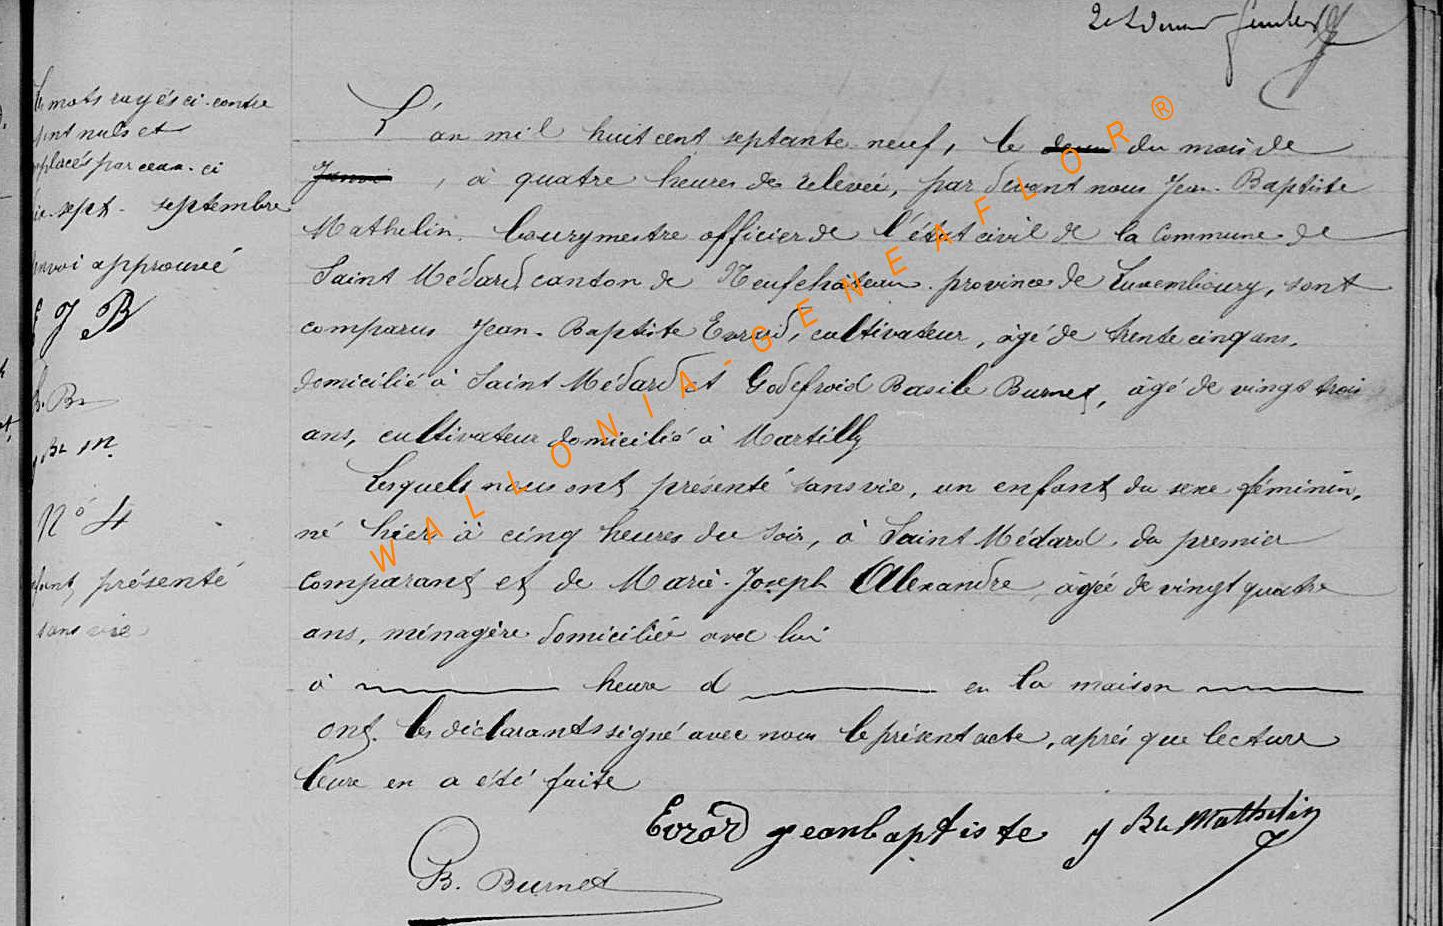 mots rayés ci-contre
sont nuls et
placés par ceux-ci
sept. septembre
renvoi approuvé
E J B
B. Bu
J Bte M.
N° 4
enfant présenté
sans vie
L'an mil huit cent septante neuf, le du mois de
, à quatre heures de relevée, par devant nous Jean-Baptiste
Mathelin, bourgmestre officier de l'état civil de la Commune de
Saint Médard canton de Neufchâteau province de Luxembourg, sont
comparus Jean-Baptiste Evrard, cultivateur, âgé de trente cinq ans,
domicilié à Saint Médard et Godefroid Basile Burnet, âgé de vingt trois
ans, cultivateur domicilié à Martilly
Lesquels nous ont présenté sans vie, un enfant du sexe féminin,
né hier à cinq heures du soir, à Saint Médard, du premier
comparant et de Marie-Joseph Alexandre, âgée de vingt quatre
ans, ménagère domiciliée avec lui
à heure d en la maison
ont les déclarants signé avec nous le présent acte, après que lecture
leur en a été faite
Evrard jeanbaptiste J Bte Mathelin
B. Burnet
WALLONIA-GENEAFLOR®